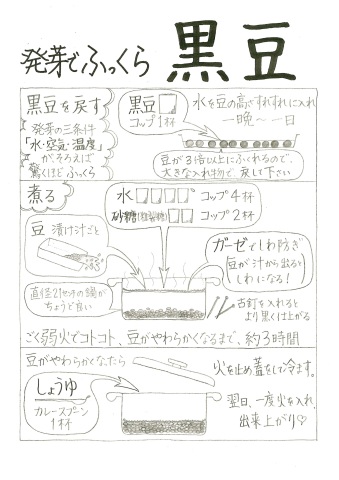 発芽でふっくら 黒豆
黒豆を戻す
発芽の三条件
「水・空気・温度」
がそろえば
驚くほどふっくら
黒豆
コップ1杯
水を豆の高さすれすれに入れ
一晩〜一日
豆が3倍以上にふくれるので、
大きな入れ物で、戻して下さい
煮る
水 コップ4杯
砂糖 コップ2杯
豆 漬け汁ごと
ガーゼでしわ防ぎ
豆が汁から出ると
しわになる!
直径21センチの鍋が
ちょうど良い
古釘を入れると
より黒く仕上がる
ごく弱火でコトコト、豆がやわらかくなるまで、約3時間
豆がやわらかくなったら
しょうゆ
カレースプーン
1杯
火を止め蓋をして冷ます。
翌日、一度火を入れ、
出来上がり♡